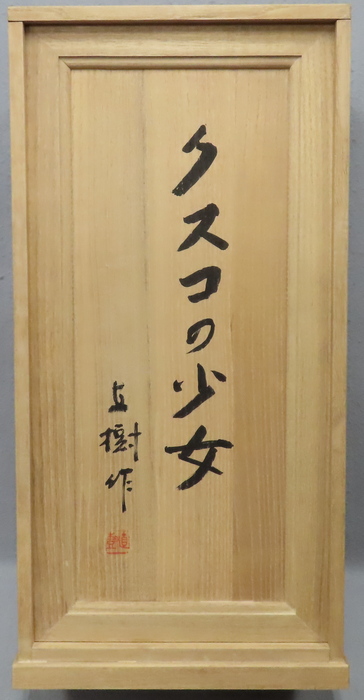 クスコの少女
直樹作